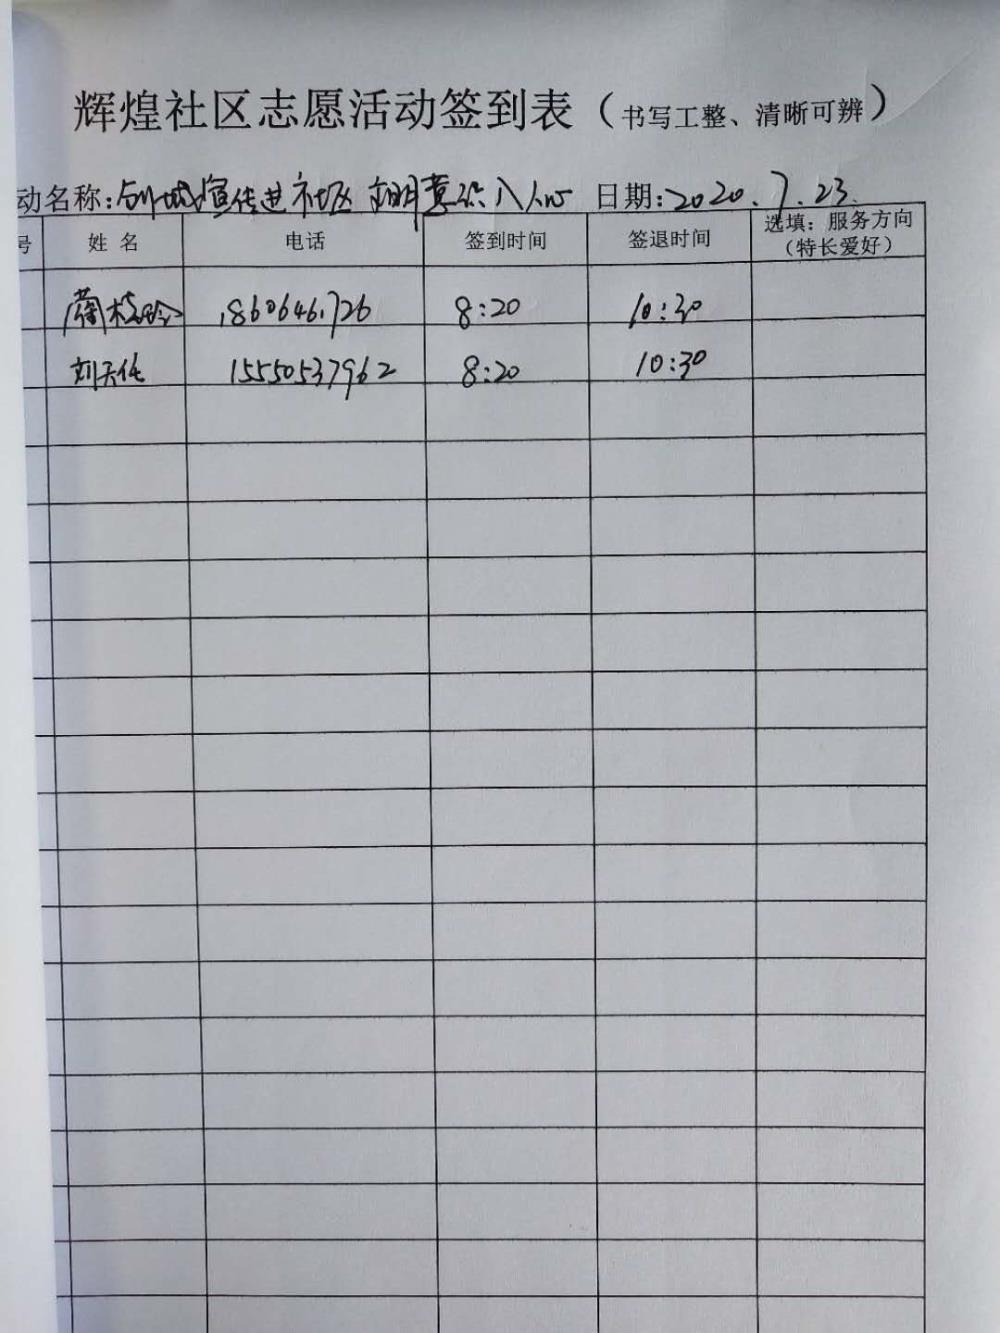 辉煌社区志愿活动签到表（书写工整、清晰可辨）
动名称:创城宣传进社区 文明意识入人心 日期:2020.7.23.
号 姓名 电话 签到时间 签退时间 选填：服务方向（特长爱好）
8:20 10:30
刘天化 15550537962 8:20 10:30